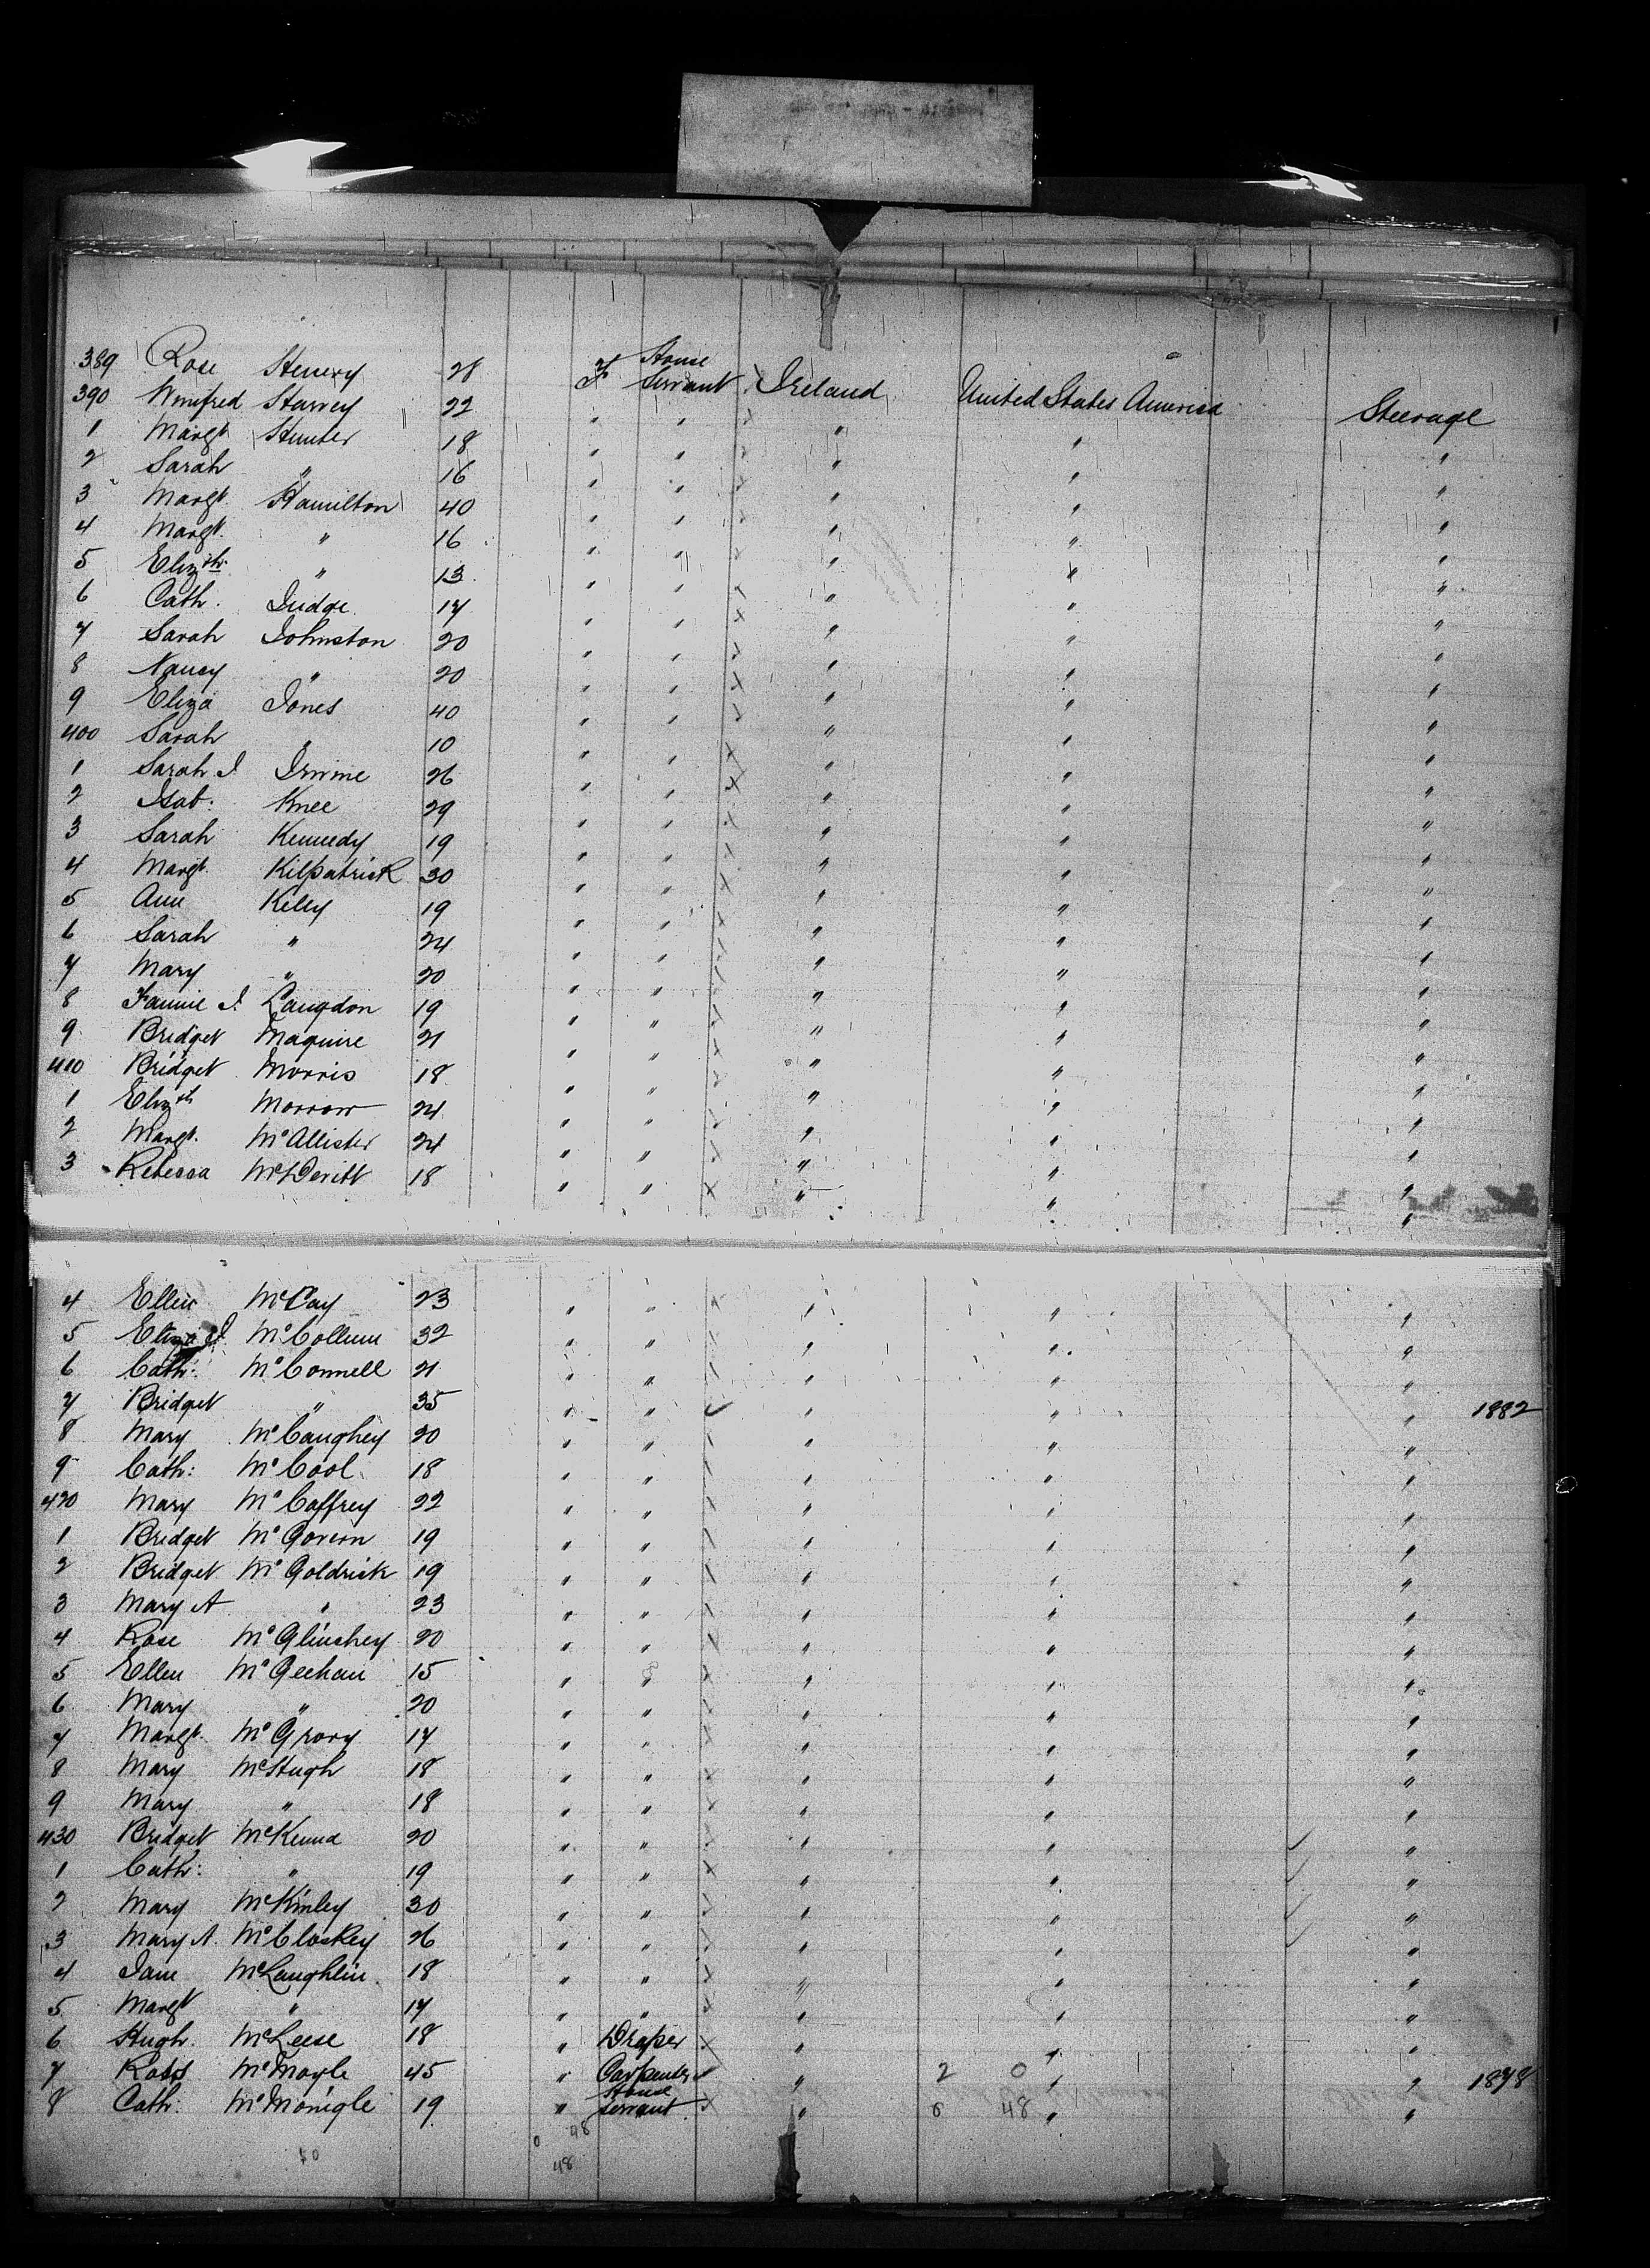 389 Rose Henery 28 F House Servant Ireland United States America Steerage
390 Winifred Harvey 22 " " " " "
1 Margt. Hunter 18 " " " " "
2 Sarah " 16 " " " " "
3 Margt. Hamilton 40 " " " " "
4 Margt. " 16 " " " " "
5 Elizth. " 13 " " " " "
6 Cath. Judge 17 " " " " "
7 Sarah Johnston 20 " " " " "
8 Nancy " 20 " " " " "
9 Eliza Jones 40 " " " " "
400 Sarah " 10 " " " " "
1 Sarah J. Irvine 26 " " " " "
2 Isab: Knee 29 " " " " "
3 Sarah Kennedy 19 " " " " "
4 Margt. Kilpatrick 30 " " " " "
5 Ann Kiley 19 " " " " "
6 Sarah " 24 " " " " "
7 Mary " 20 " " " " "
8 Fannie J. Langdon 19 " " " " "
9 Bridget Maguire 21 " " " " "
410 Bridget Morris 18 " " " " "
1 Elizth Morrow 24 " " " " "
2 Margt. McAllister 24 " " " " "
3 Rebecca McDevitt 18 " " " " "
4 Ellen McCay 23 " " " " "
5 Eliza J. McCollum 32 " " " " "
6 Cath: McConnell 21 " " " " "
7 Bridget " 35 " " " " " 1882
8 Mary McCaughey 20 " " " " "
9 Cath: McCool 18 " " " " "
420 Mary McCaffrey 22 " " " " "
1 Bridget McGovern 19 " " " " "
2 Bridget McGoldrick 19 " " " " "
3 Mary A " 23 " " " " "
4 Rose McGlinchey 20 " " " " "
5 Ellen McGeehan 15 " " " " "
6 Mary " 20 " " " " "
7 Margt. McGrory 17 " " " " "
8 Mary McHugh 18 " " " " "
9 Mary " 18 " " " " "
430 Bridget McKenna 20 " " " " "
1 Cath: " 19 " " " " "
2 Mary McKinley 30 " " " " "
3 Mary A. McCloskey 26 " " " " "
4 Jane McLaughlin 18 " " " " "
5 Margt " 17 " " " " "
6 Hugh McLeese 18 " Draper " " "
7 Robt McMoyle 45 " Carpenter " 2 0 " " 1878
8 Cath: McMonigle 19 " House Servant " 0 48 " "
0 48
48